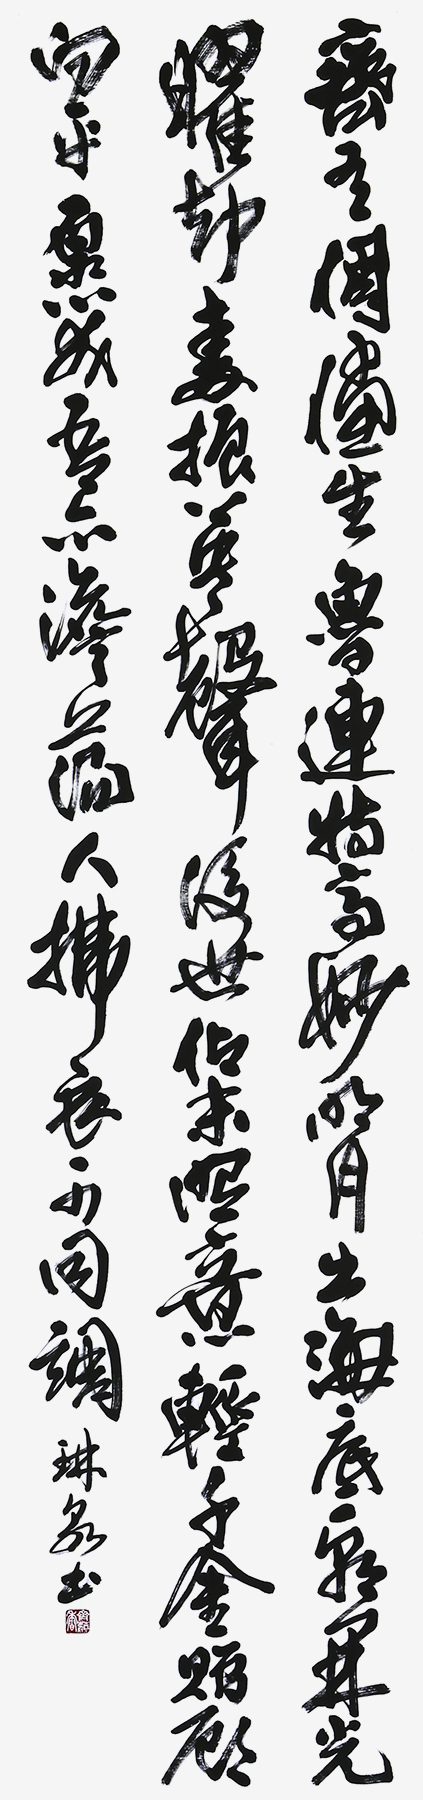 齊有倜儻生魯連特高妙明月出海底一朝開光
曜却秦振英聲後世仰末照意輕千金贈顧
向平原笑吾亦澹蕩人拂衣可同調
琳泉书